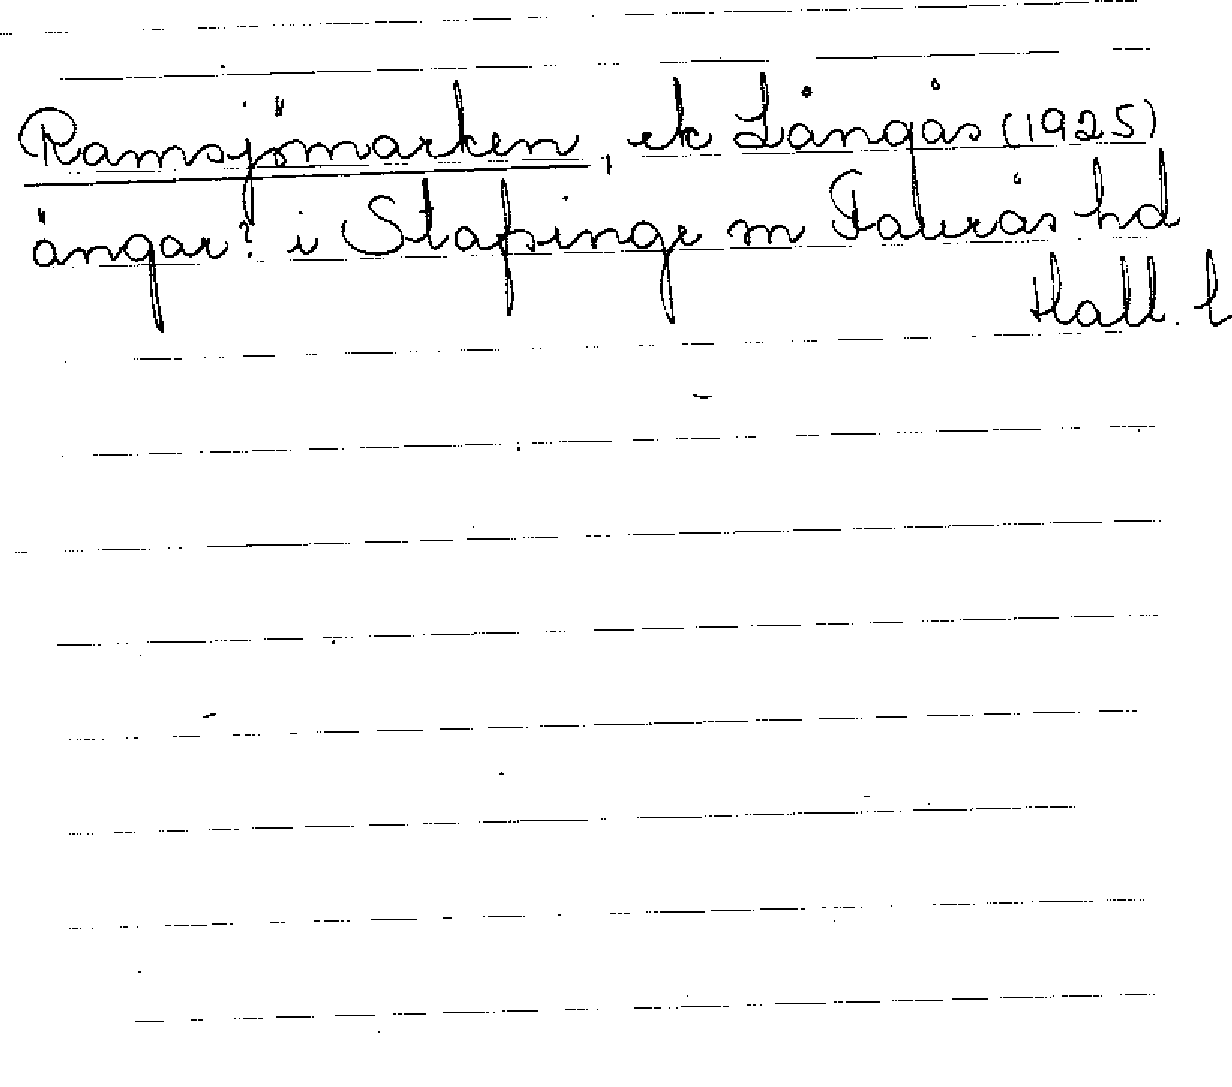 Ramsjömarken, ek Långås (1925)
ängar? i Stafsinge sn Faurås hd
Hall. l